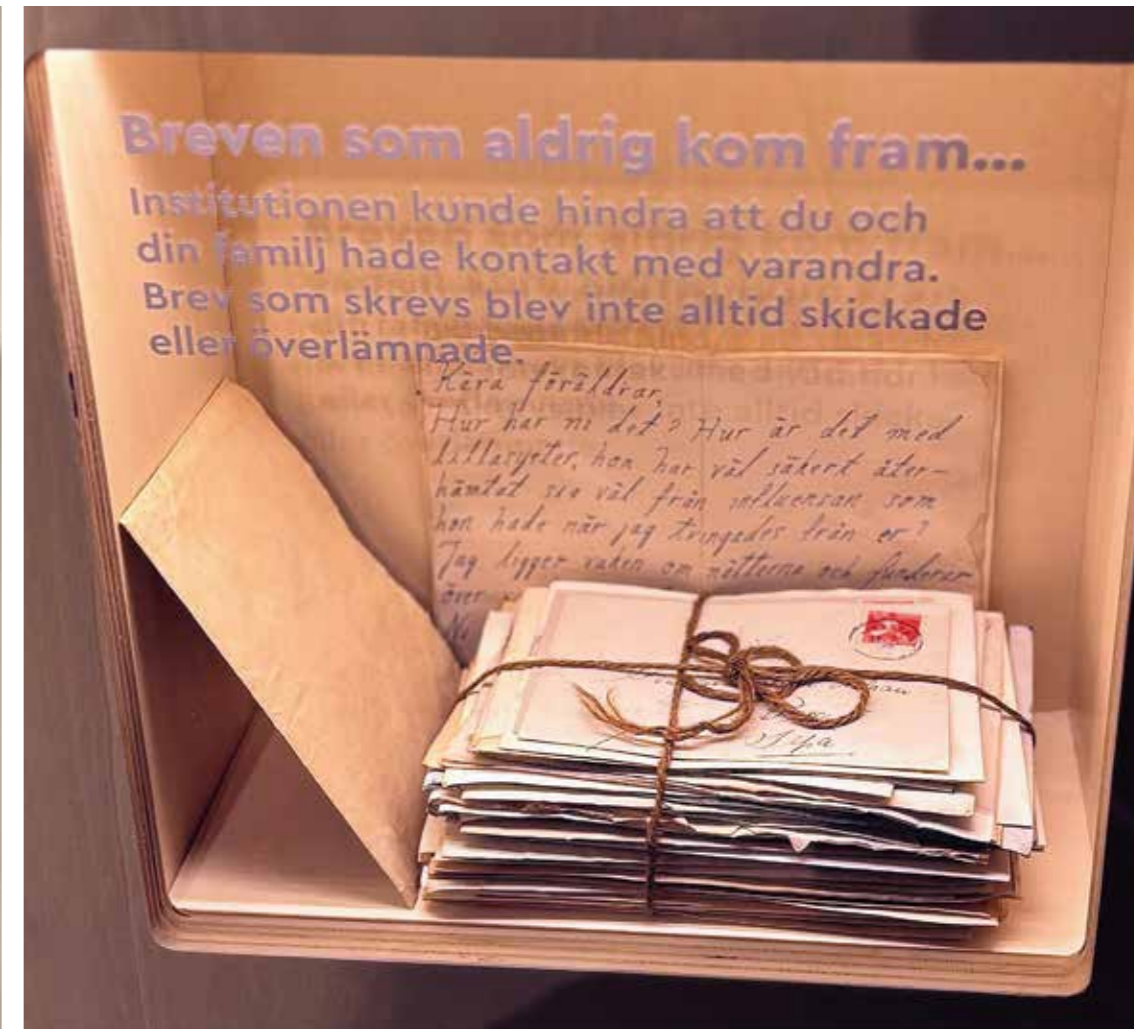 Breven som aldrig kom fram...
Institutionen kunde hindra att du och
din familj hade kontakt med varandra.
Brev som skrevs blev inte alltid skickade
eller överlämnade.
Kära föräldrar,
Hur har ni det? Hur är det med
lillasyster, hon har väl säkert åter-
hämtat sig väl från influensan som
hon hade när jag tvingades från er?
Jag ligger vaken om nätterna och funderar
över